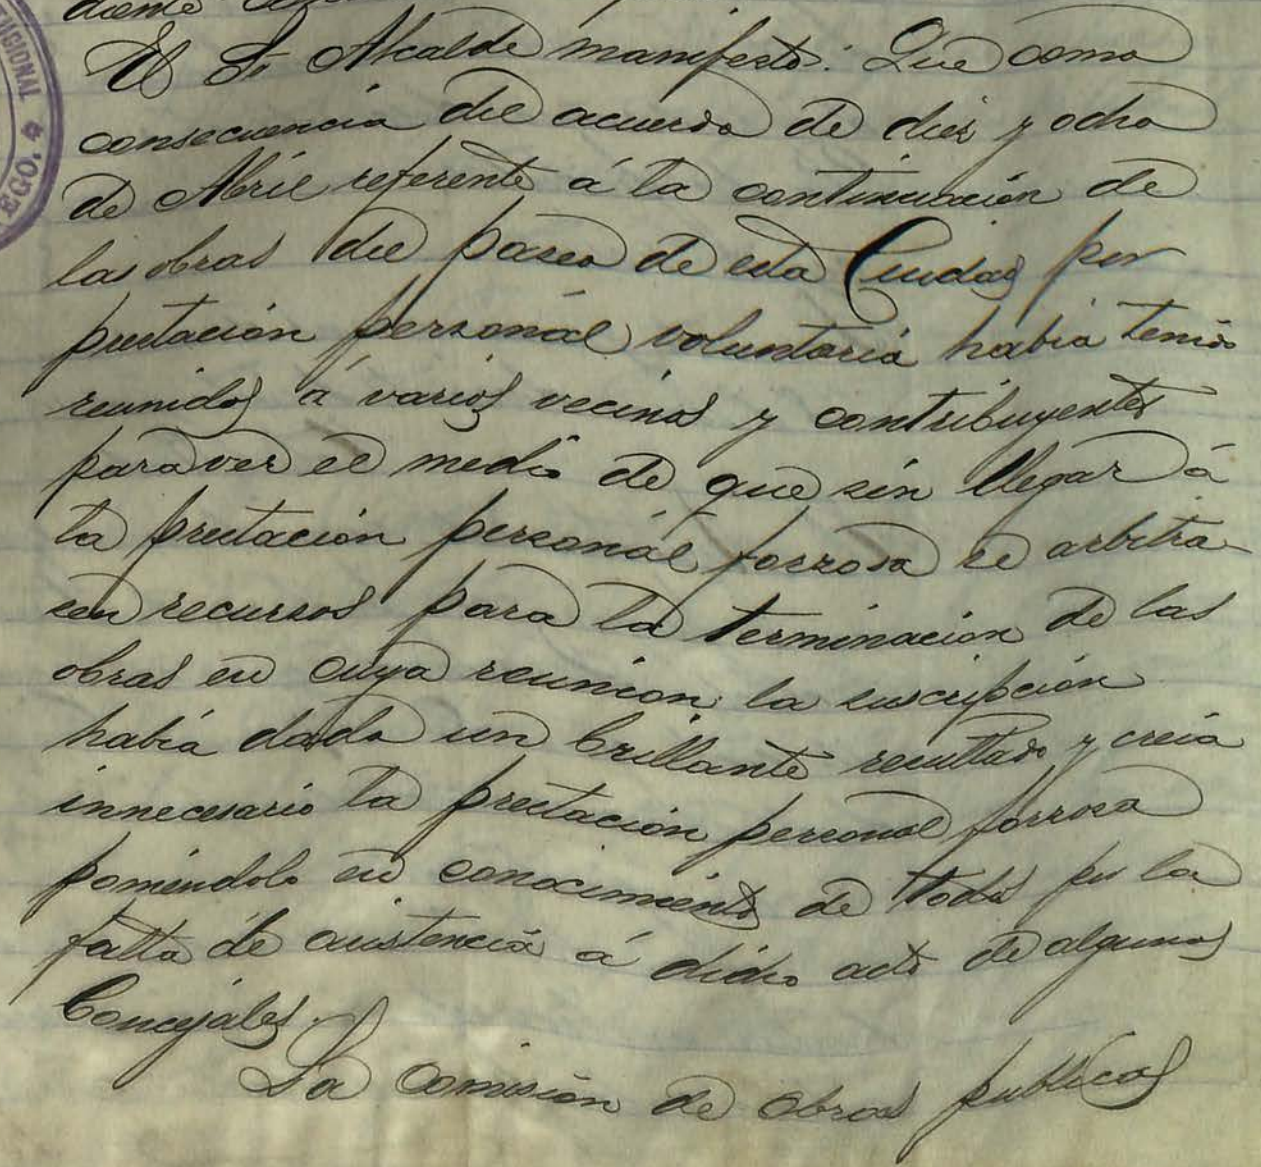 diente
El Sr Alcalde manifestó: Que como
consecuencia del acuerdo de diez y ocho
de Abril referente á la continuación de
las obras del paseo de esta Ciudad por
prestación personál voluntaria habia tenido
reunidos á varios vecinos y contribuyentes
para ver el medio de que sin llegar á
la prestación personál forzosa se arbitra-
sen recursos para la terminación de las
obras en cuya reunion la suscripción
había dado un brillante resultado y creía
innecesario la prestación personal forzosa
poniéndolo en conocimiento de todos por la
falta de asistencia á dicho acto de algunos
Concejáles.
La comisión de obras publicas
UCIONAL
EGO.